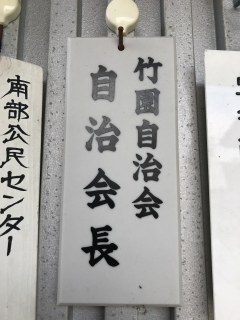 竹園自治会
自治会長
南部公民センター